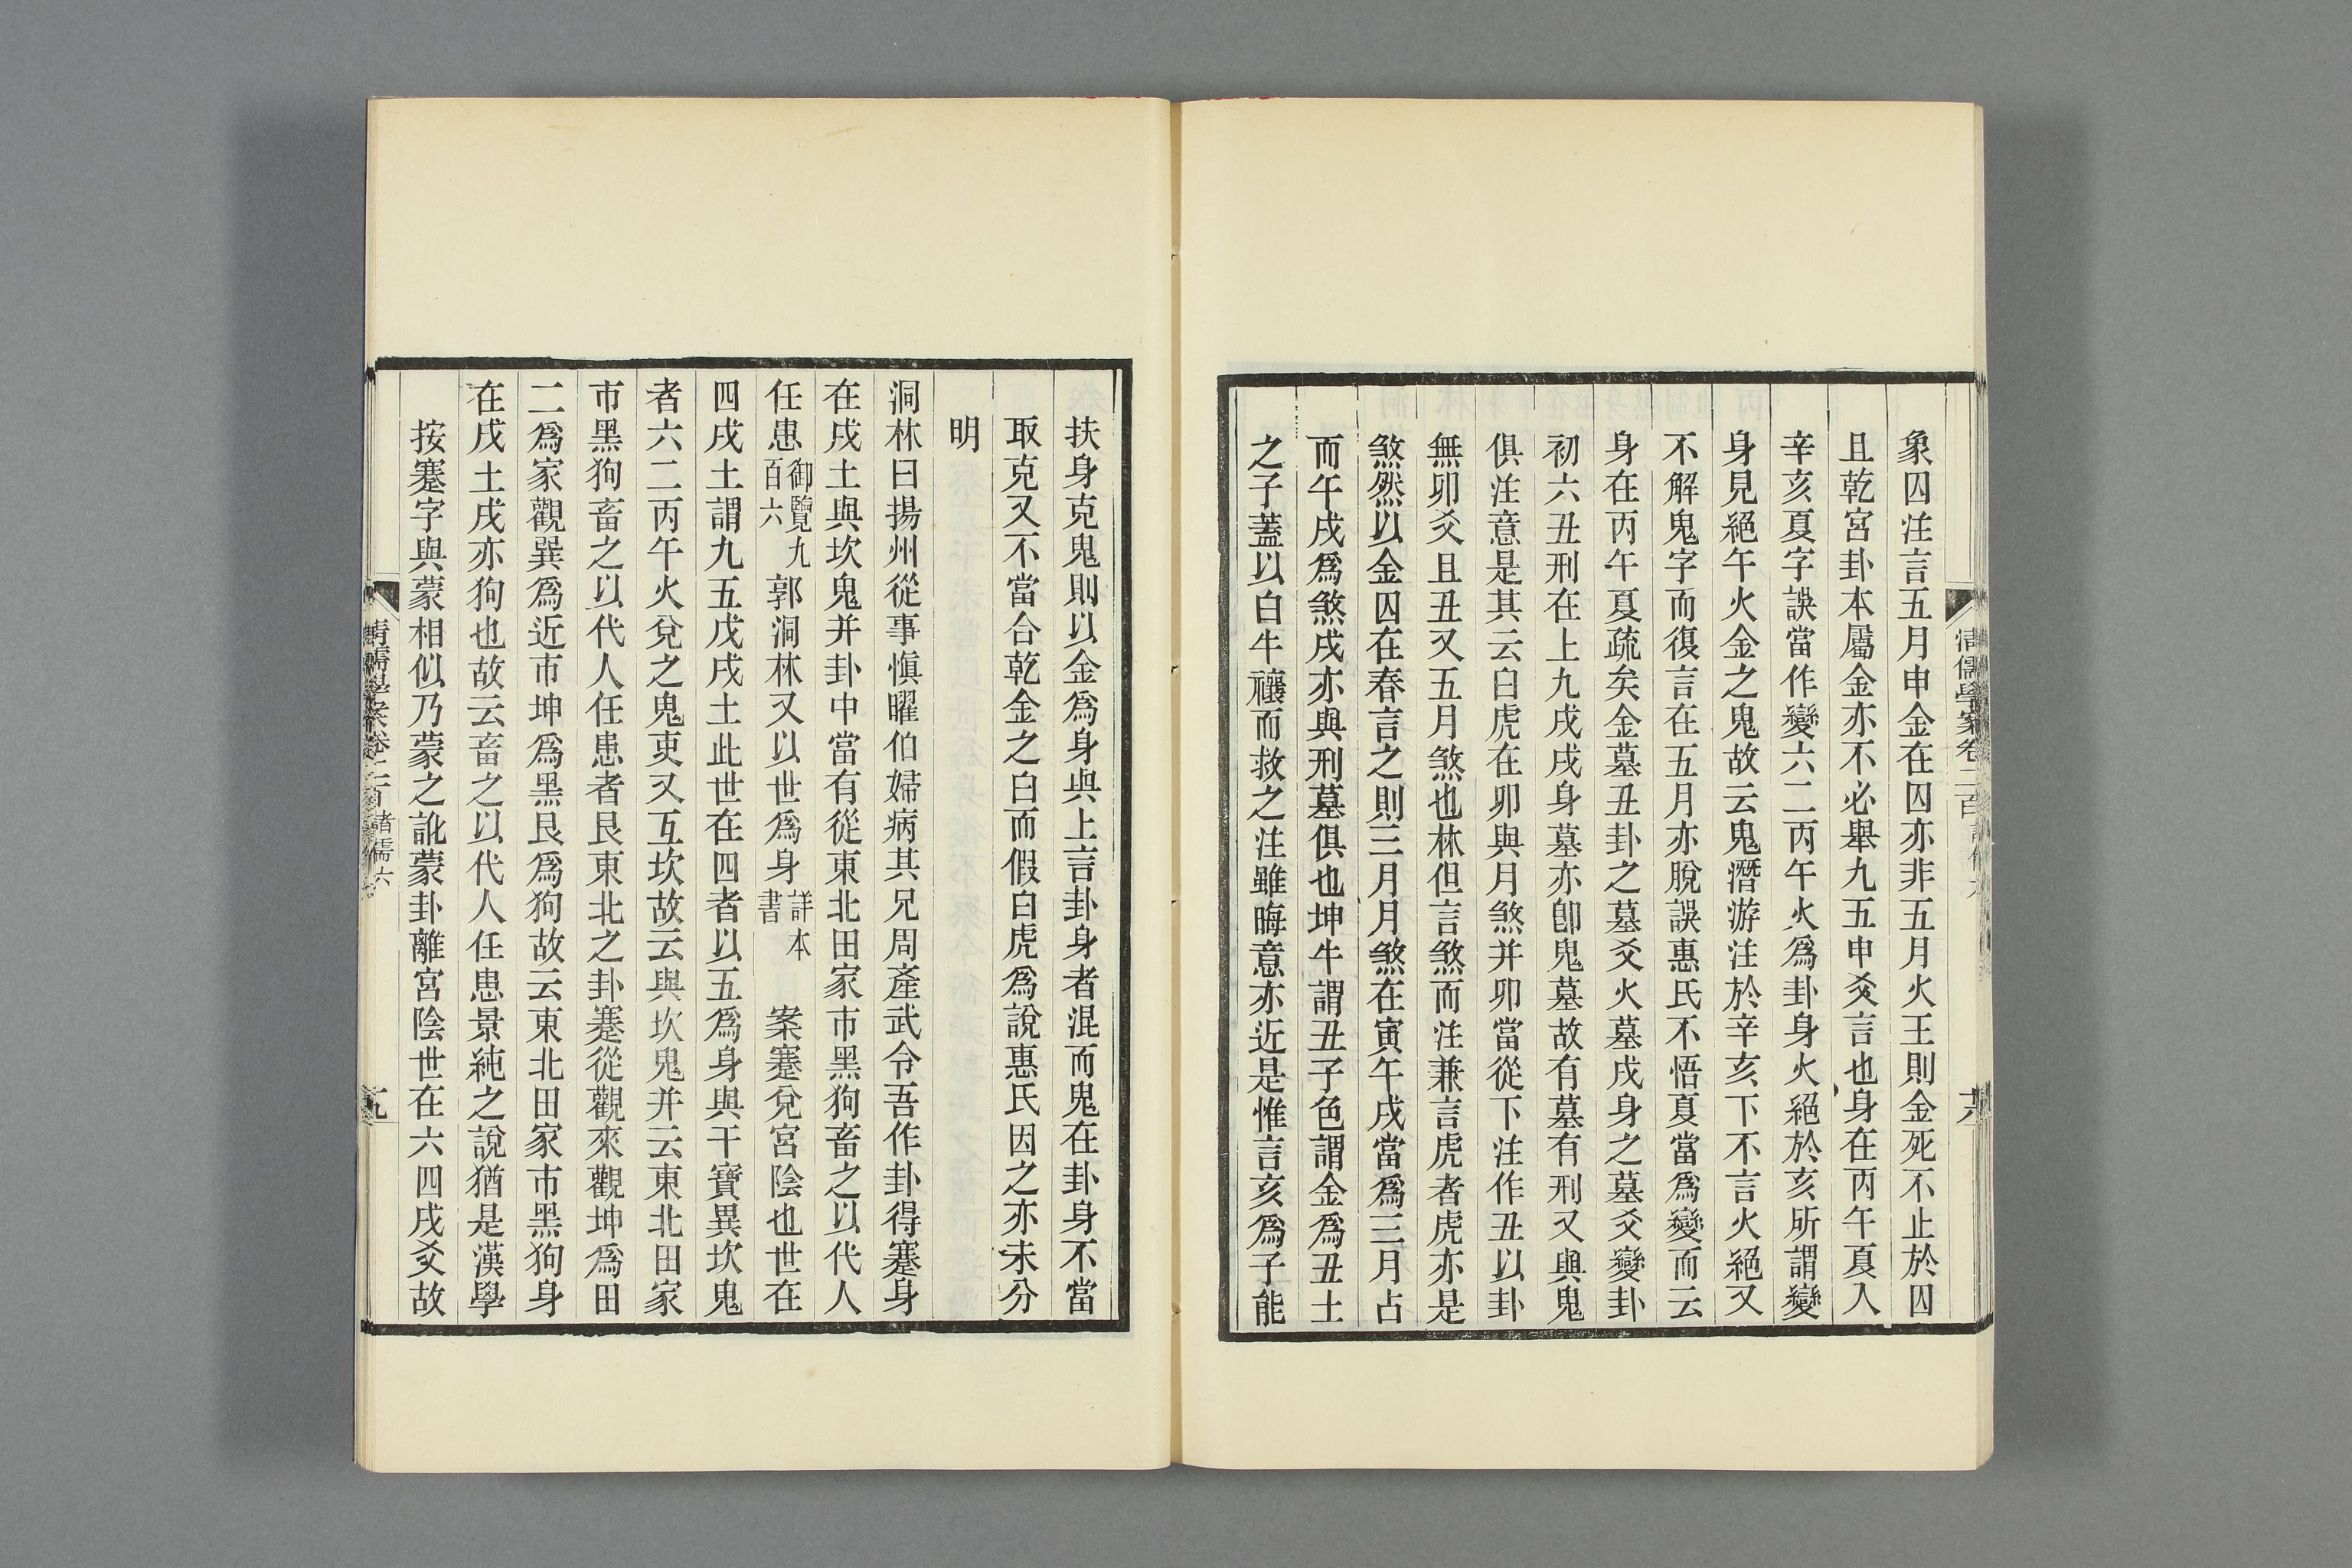 象囚注言五月申金在囚亦非五月火王則金死不止於囚
且乾宮卦本屬金亦不必舉九五申爻言也身在丙午夏入
辛亥夏字誤當作變六二丙午火爲卦身火絕於亥所謂變
身見絕午火金之鬼故云鬼潛游注於辛亥下不言火絕又
不解鬼字而復言在五月亦脫誤惠氏不悟夏當爲變而云
身在丙午夏疏矣金墓丑卦之墓爻火墓戌身之墓爻變卦
初六丑刑在上九戌戌身墓亦卽鬼墓故有墓有刑又與鬼
俱注意是其云白虎在卯與月煞并卯當從下注作丑以卦
無卯爻且丑又五月煞也林但言煞而注兼言虎者虎亦是
煞然以金囚在春言之則三月月煞在寅午戌當爲三月占
而午戌爲煞戌亦與刑墓俱也坤牛謂丑子色謂金爲丑土
之子蓋以白牛禳而救之注雖晦意亦近是惟言亥爲子能
扶身克鬼則以金爲身與上言卦身者混而鬼在卦身不當
取克又不當合乾金之白而假白虎爲說惠氏因之亦未分
明
洞林曰揚州從事愼曜伯婦病其兄周產武令吾作卦得蹇身
在戌土與坎鬼并卦中當有從東北田家市黑狗畜之以代人
任患御覽九百六郭洞林又以世爲身詳本書案蹇兌宮陰也世在
四戌土謂九五戊戌土此世在四者以五爲身與干寶異坎鬼
者六二丙午火兌之鬼吏又互坎故云與坎鬼并云東北田家
市黑狗畜之以代人任患者艮東北之卦蹇從觀來觀坤爲田
二爲家觀巽爲近市坤爲黑艮爲狗故云東北田家市黑狗身
在戌土戌亦狗也故云畜之以代人任患景純之說猶是漢學
按蹇字與蒙相似乃蒙之訛蒙卦離宮陰世在六四戌爻故
清儒學案卷二百 諸儒六